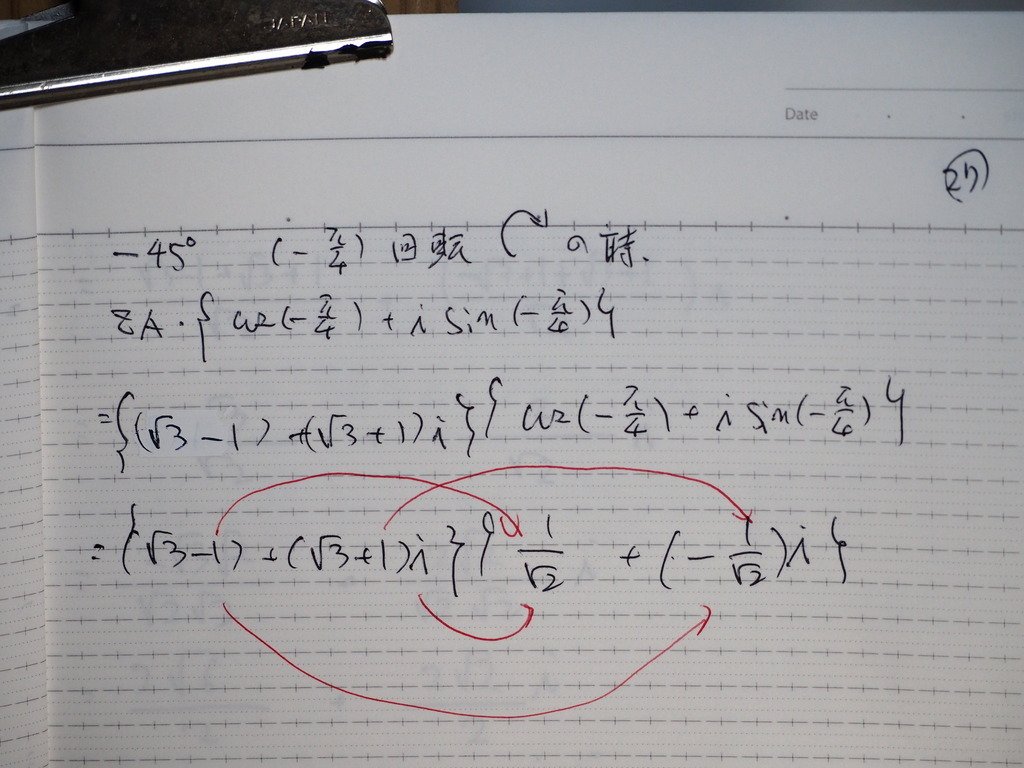 JAPAN
Date
27)
-45° (-π/4) 回転 の時.
ZA・{cos(-π/4) + i sin(-π/4)}
={(√3-1)+(√3+1)i}{cos(-π/4) + i sin(-π/4)}
={(√3-1)+(√3+1)i}{1/√2 + (-1/√2)i}